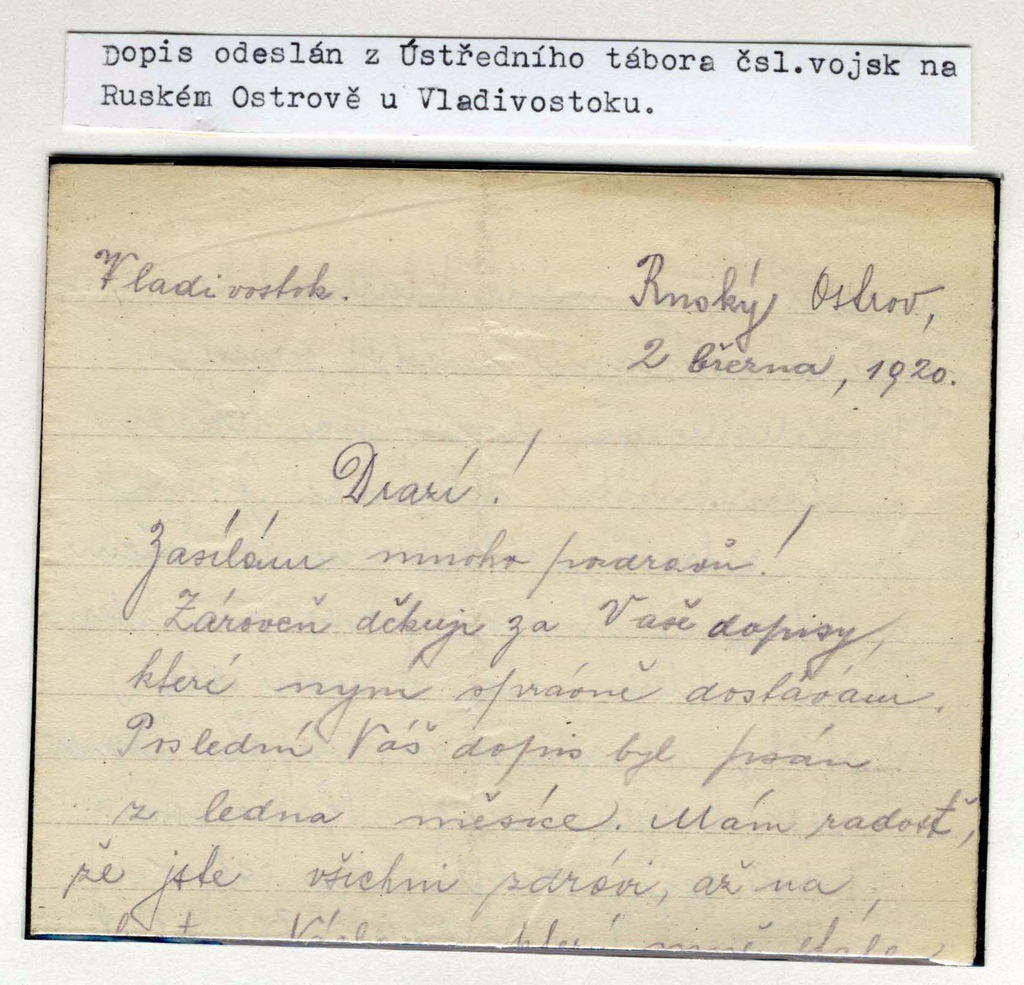 Dopis odeslán z Ústředního tábora čsl.vojsk na
Ruském Ostrově u Vladivostoku.
Vladivostok.
Ruský Ostrov,
2 března, 1920.
Drazí!
Zasílám mnoho pozdravů!
Zároveň děkuji za Vaše dopisy,
které nym správně dostávám.
Poslední Váš dopis byl psán
z ledna měsíce. Mám radosť,
že jste všichni zdrávi, až na